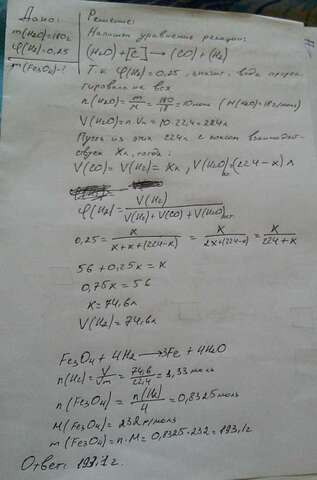 Дано:
m(H2O)=180г
φ(H2)=0,25
m(Fe3O4)-?
Решение:
Напишем уравнение реакции:
(H2O)+[C] → (CO)+(H2)
Т.к φ(H2)=0,25, значит, вода прореа-
гировала не вся
n(H2O)=m/M=180/18=10моль (M(H2O)=18г/моль)
V(H2O)=n·Vm=10·22,4=224л
Пусть из этих 224л с коксом взаимодей-
ствует Xл, тогда:
V(CO)=V(H2)=Xл, V(H2O)ост.=(224-x)л
φ(H2)=V(H2)/(V(H2)+V(CO)+V(H2O)ост.)
0,25=x/(x+x+(224-x))=x/(2x+(224-x))=x/(224+x)
56+0,25x=x
0,75x=56
x=74,6л
V(H2)=74,6л
Fe3O4+4H2→3Fe+4H2O
n(H2)=V/Vm=74,6/22,4=3,33моль
n(Fe3O4)=n(H2)/4=0,8325моль
M(Fe3O4)=232г/моль
m(Fe3O4)=n·M=0,8325·232=193,1г
Ответ: 193,1г.